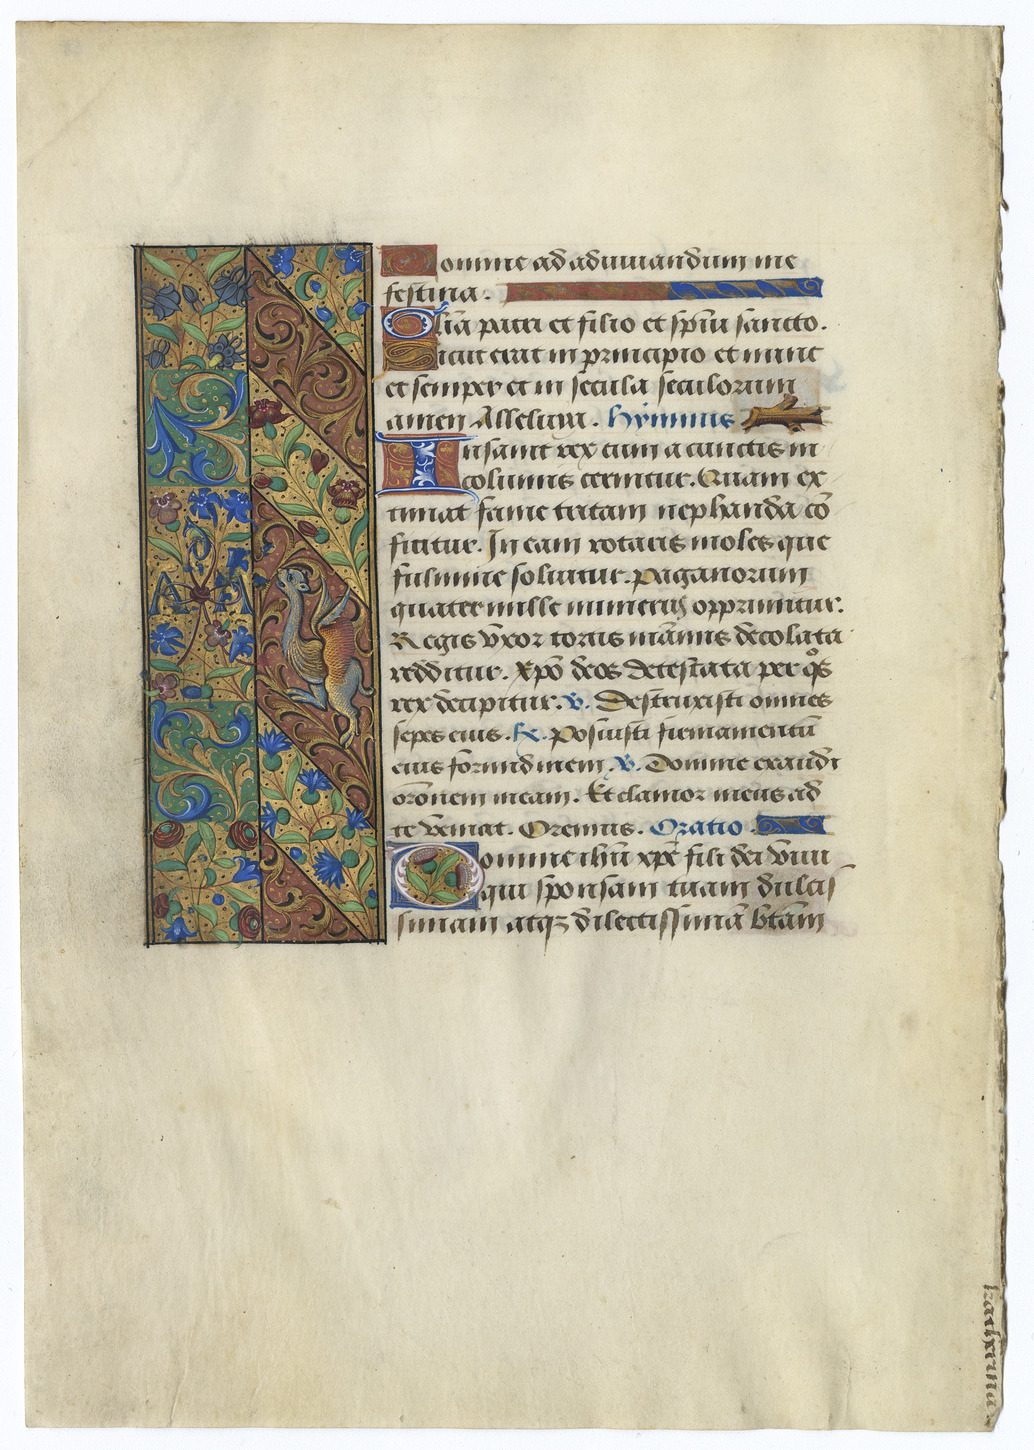 Domine ad adiuuandum me
festina.
Glīa patri et filio et spūi sancto.
Sicut erat in principio et nunc
et semper et in secula seculorum
amen Alleluia. hymnus
Insanit rex cum a cunctis in
columis cernitur. Quam ex
timat fame tritam nephanda cō
ficitur. In eam rotatis moles que
fulmine soluitur. paganorum
quater mille opprimitur.
Regis vxor toris decolata
redditur. Xpō deos detestata per q̊s
rex decipitur. v. Destruxisti omnes
sepes eius. R. Posuisti firmamentū
eius formidinem. v. Domine exaudi
orōnem meam. Et clamor meus ad
te veniat. Oremus. Oratio
Domine ihū xpē fili dei viui
qui sponsam tuam dulcis
simam atqꝫ dilectissimā btām